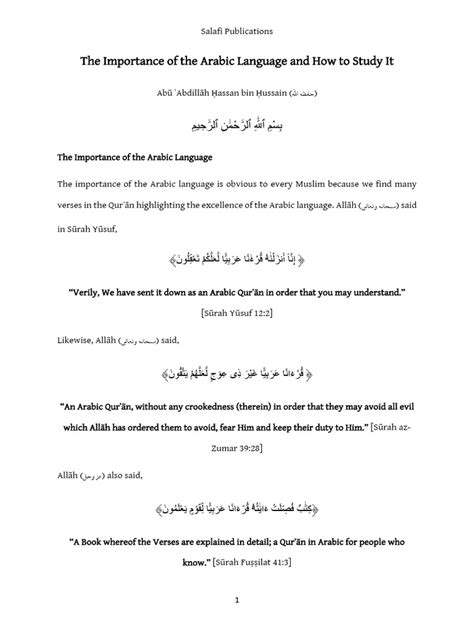 Salafi Publications
The Importance of the Arabic Language and How to Study It
Abū ʿAbdillāh Ḥassan bin Ḥussain (حفظه الله)
بِسْمِ ٱللَّهِ ٱلرَّحْمَٰنِ ٱلرَّحِيمِ
The Importance of the Arabic Language
The importance of the Arabic language is obvious to every Muslim because we find many
verses in the Qurʾān highlighting the excellence of the Arabic language. Allāh (سبحانه وتعالى) said
in Sūrah Yūsuf,
﴿ إِنَّآ أَنزَلْنَٰهُ قُرْءَٰنًا عَرَبِيًّا لَّعَلَّكُمْ تَعْقِلُونَ﴾
“Verily, We have sent it down as an Arabic Qurʾān in order that you may understand.”
[Sūrah Yūsuf 12:2]
Likewise, Allāh (سبحانه وتعالى) said,
﴿ قُرْءَانًا عَرَبِيًّا غَيْرَ ذِى عِوَجٍ لَّعَلَّهُمْ يَتَّقُونَ﴾
“An Arabic Qurʾān, without any crookedness (therein) in order that they may avoid all evil
which Allāh has ordered them to avoid, fear Him and keep their duty to Him.” [Sūrah az-
Zumar 39:28]
Allāh (عز وجل) also said,
﴿كِتَٰبٌ فُصِّلَتْ ءَايَٰتُهُۥ قُرْءَانًا عَرَبِيًّا لِّقَوْمٍ يَعْلَمُونَ﴾
“A Book whereof the Verses are explained in detail; a Qurʾān in Arabic for people who
know.” [Sūrah Fuṣṣilat 41:3]
1